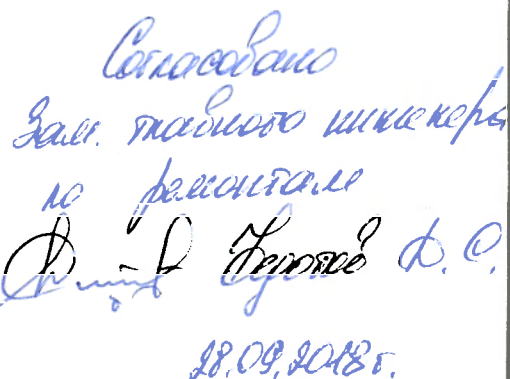 Согласовано
Зам. главного инженера
по ремонтам
Д. С.
28.09.2018 г.